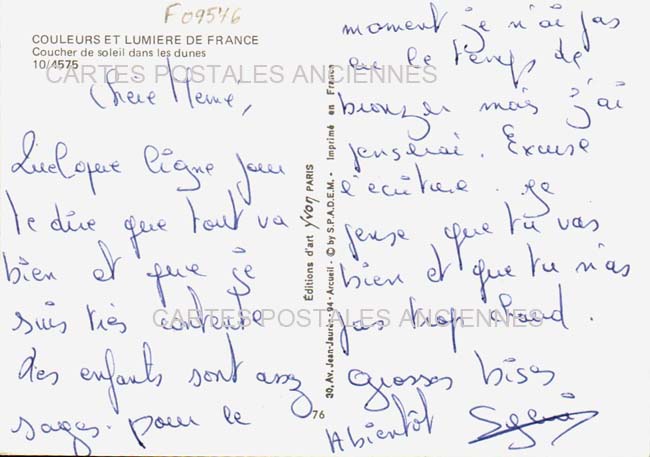 F09546
COULEURS ET LUMIERE DE FRANCE
Coucher de soleil dans les dunes
10/4575
CARTES POSTALES ANCIENNES
Chère Mémé,
Quelque ligne pour
te dire que tout va
bien et que je
suis très contente
des enfants sont assez
sages. pour le
CARTES POSTALES ANCIENNES
76
Editions d'art Yvon PARIS
30, Av. Jean-Jaurès - 94 - Arcueil - © by S.P.A.D.E.M. - Imprimé en France
moment je n'ai pas
eu le temps de
bronzer mais j'ai
Excuse
l'écriture. Je
pense que tu vas
bien et que tu n'as
pas trop chaud.
Grosses bises
A bientôt